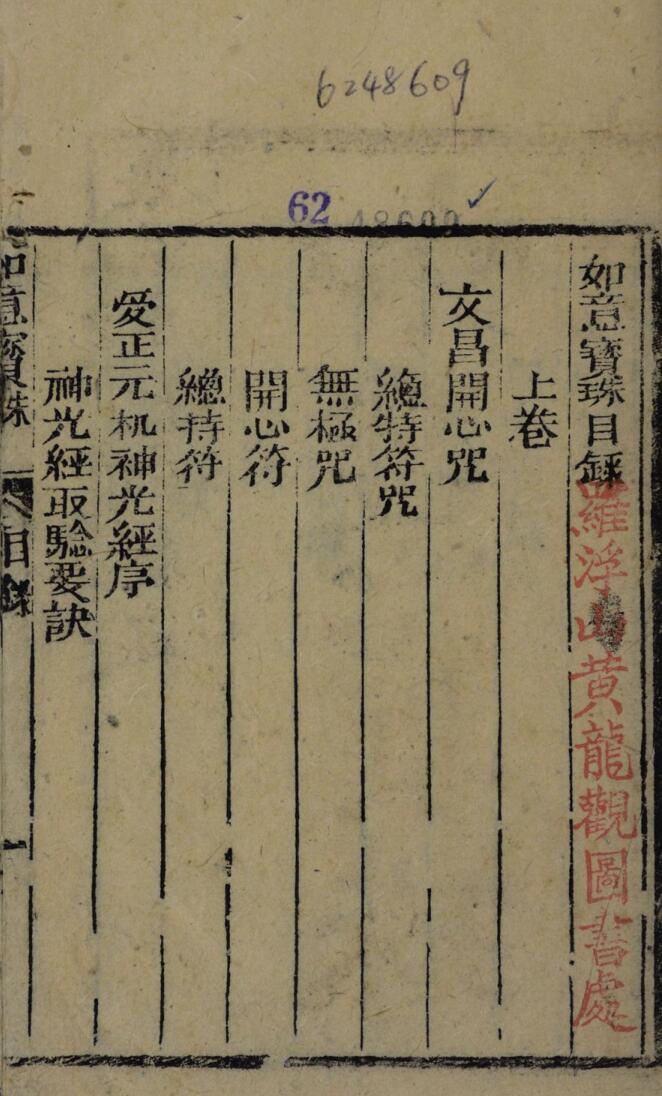 6248609
62 48609
如意寳珠目錄
羅浮山黄龍觀圖書處
上卷
文昌開心咒
緫特符咒
無極咒
開心符
緫持符
愛正元机神光經序
神光經取驗要訣
如意寳珠 目錄 一